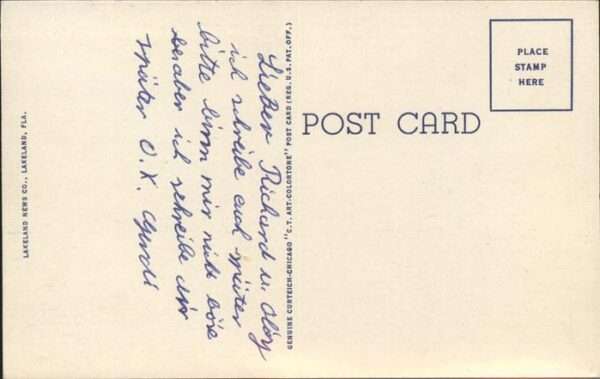 Lieber Richard u.
ich schreibe euch später
bitte binn mir nicht böse
aber ich schreibe dir
später O.K.
LAKELAND NEWS CO., LAKELAND, FLA.
GENUINE CURTEICH-CHICAGO "C.T. ART-COLORTONE" POST CARD (REG. U.S. PAT. OFF.)
POST CARD
PLACE
STAMP
HERE